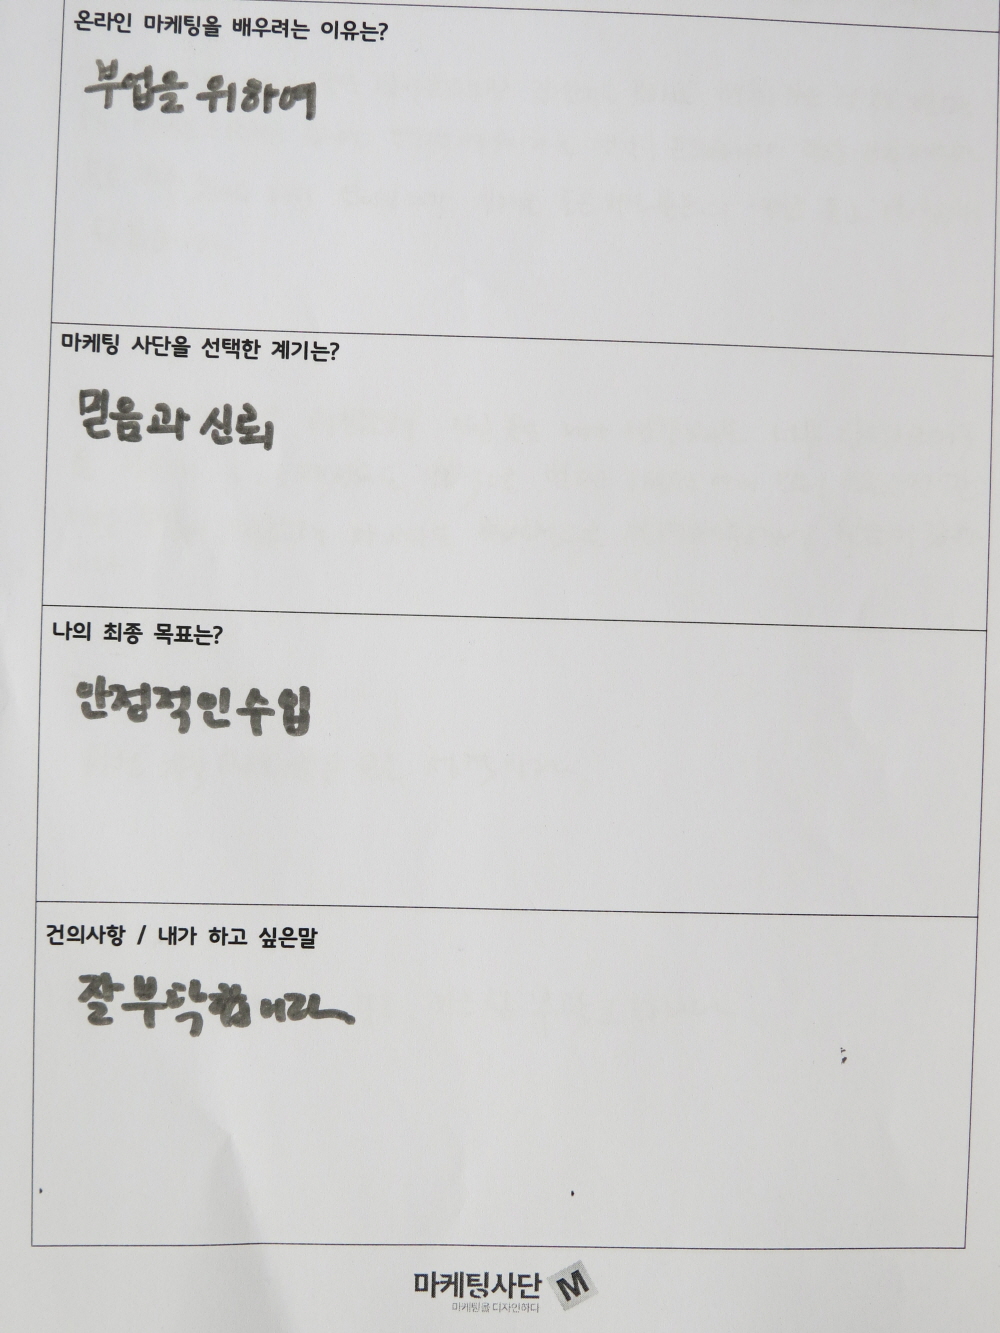 온라인 마케팅을 배우려는 이유는?
부업을 위하여
마케팅 사단을 선택한 계기는?
믿음과 신뢰
나의 최종 목표는?
안정적인 수입
건의사항 / 내가 하고 싶은말
잘 부탁합니다
마케팅사단 M
마케팅을 디자인하다